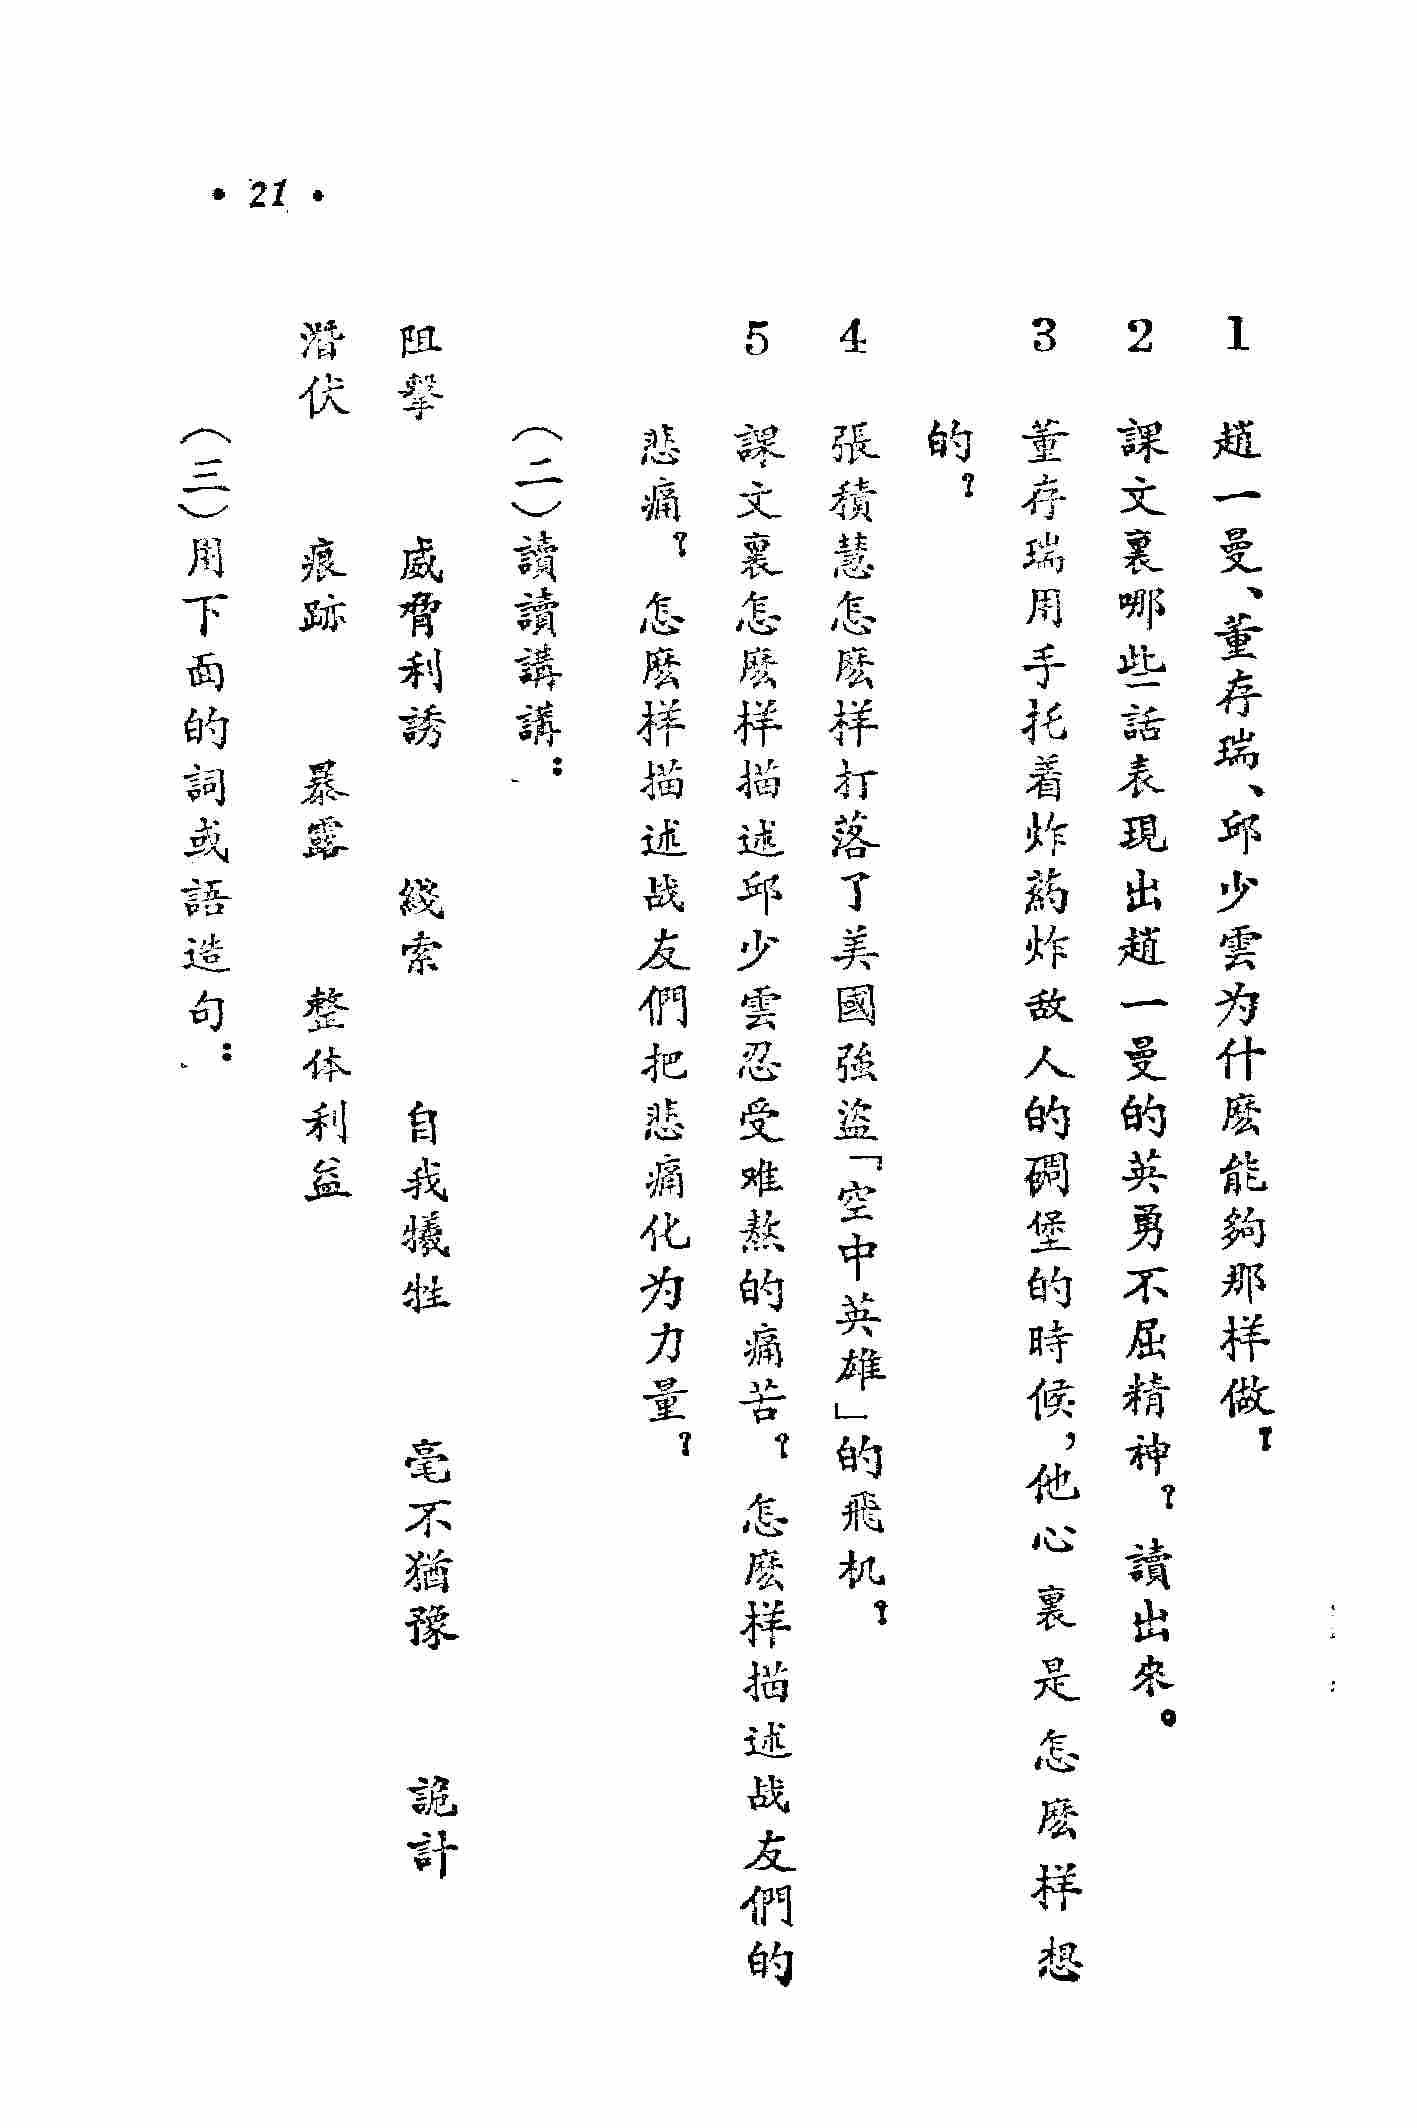 1 趙一曼、董存瑞、邱少雲为什麽能夠那样做？
2 課文裏哪些話表現出趙一曼的英勇不屈精神？讀出來。
3 董存瑞用手托着炸葯炸敌人的碉堡的時候，他心裏是怎麽样想
的？
4 張積慧怎麽样打落了美國強盜「空中英雄」的飛机？
5 課文裏怎麽样描述邱少雲忍受难熬的痛苦？怎麽样描述战友們的
悲痛？怎麽样描述战友們把悲痛化为力量？
（二）讀讀講講：
阻擊 威脅利誘 綫索 自我犧牲 毫不猶豫 詭計
潛伏 痕跡 暴露 整体利益
（三）用下面的詞或語造句：
• 21 •